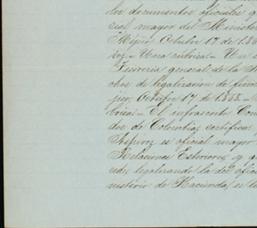 los documentos oficiales q
cial mayor del Minister
Méjico Octubre 17 de 185
rez - Una rúbrica - Un s
Tesorería general de la
chos de legalización de firm
jico, Octubre 17 de 1855 -
brica - El infrascrito Con
dos de Colombia certifica
es oficial mayor
Relaciones Exteriores y q
cede legalizando la del ofic
nisterio de Hacienda, es la